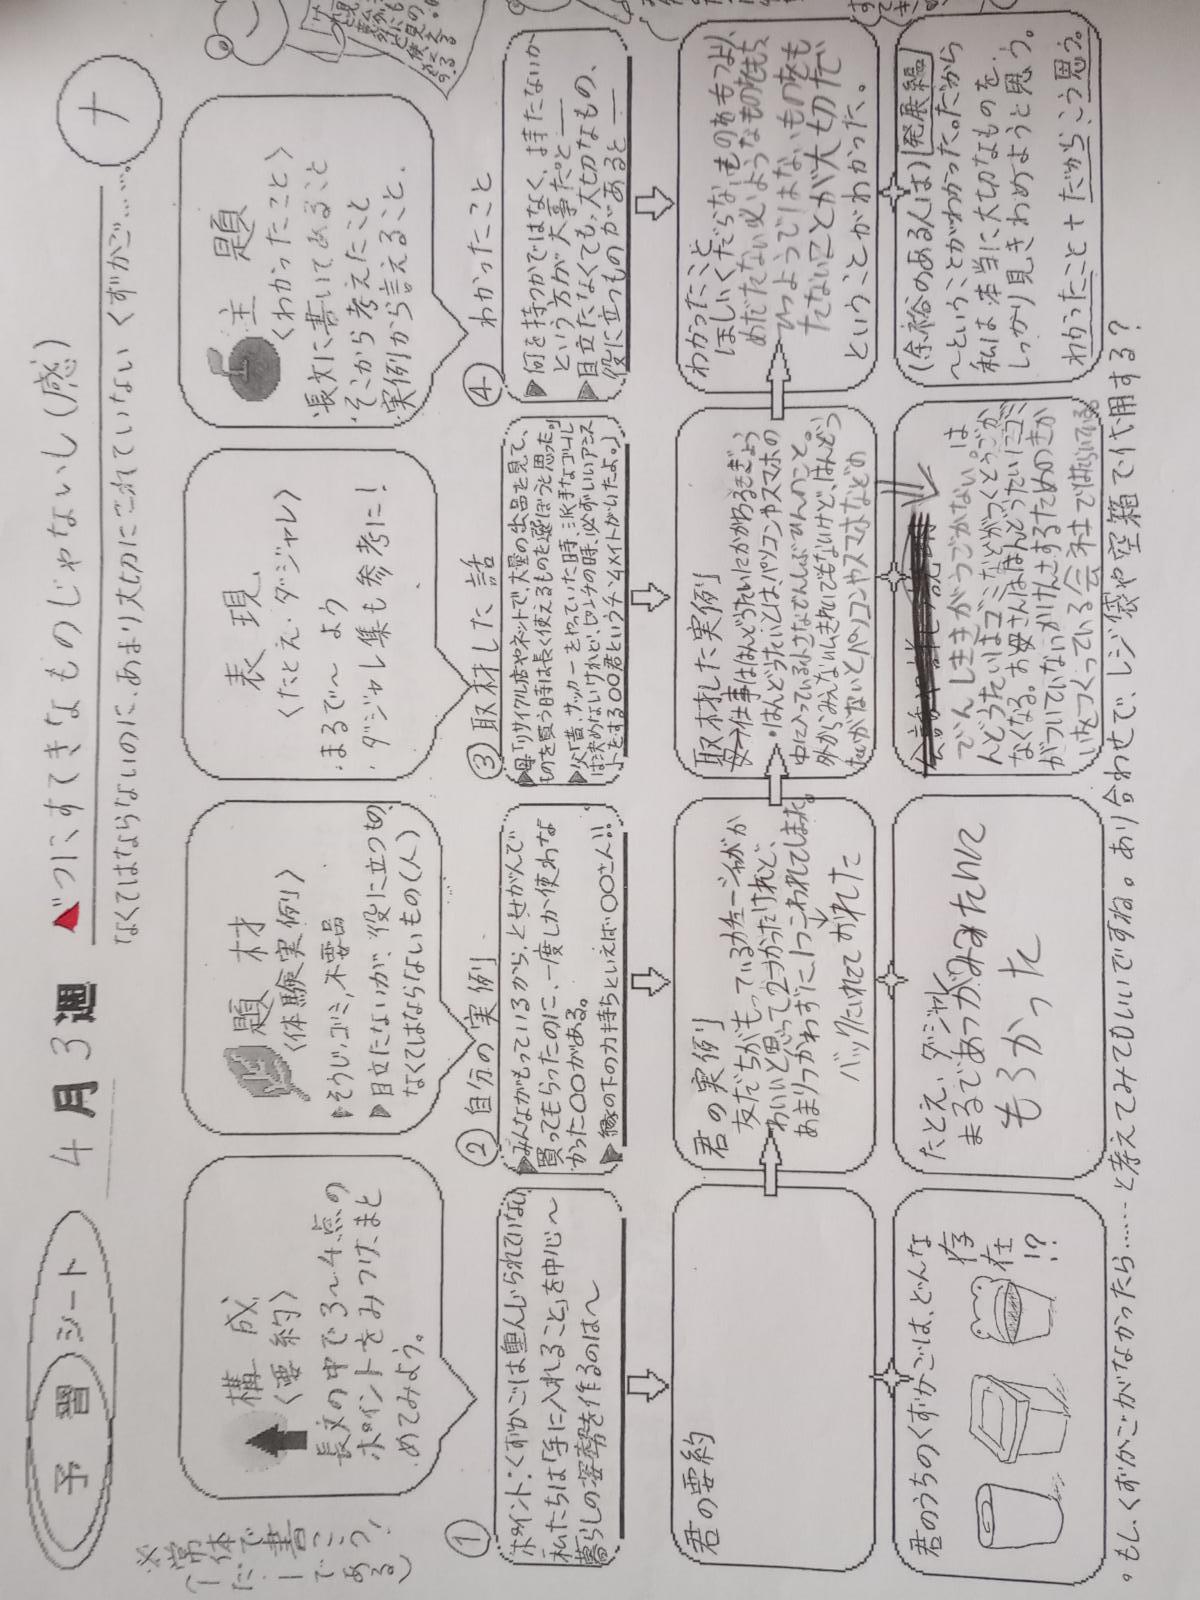 予習シート
4月3週
べつにすてきなものじゃないし(感)
ナ
なくてはならないのに、あまり大切にされていない くずかご……。
※常体で書こう!
(~だ、~である)
構成
〈要約〉
長文の中で3~4点の
ポイントをみつけ、まと
めてみよう。
題材
〈体験実例〉
そうじ、ゴミ、不要品
目立たないが、役に立つもの
なくてはならないもの(人)
表現
〈たとえ・ダジャレ〉
・まるで~ よう
・ダジャレ集も参考に!
主題
〈わかったこと〉
・長文に書いてあること
・そこから考えたこと
・実例から言えること、
①
ポイント:くずかごは重んじられていない
私たちは「手に入れること」を中心~
暮らしの姿勢を作るのは~
② 自分の実例
みんながもっているから、とせがんで
買ってもらったのに、一度しか使わな
かった〇〇がある。
縁の下の力持ちといえば〇〇さん!!
③ 取材した話
母「リサイクル店やネットで、大量の出品を見て、
ものを買う時は長く使えるものを選ぼうと思った。」
父「昔、サッカーをやっていた時、派手なゴールし
は決めないけれど、ピンチの時、必ずいいアシス
トをする〇〇君というチームメイトがいたよ。」
④ わかったこと
何を持つかではなく、持たないか
という方が大事だと――
目立たなくても、大切なもの、
役に立つものがあると――
君の要約
君の実例
友だちがもっているカチューシャがか
わいいと思って2つかったけれど、
あまりつかわずに1つこわれてしまた。
バックにいれてて おれた
取材した実例
母→仕事ははんどうたいにかかわるさぎょう
・はんどうたいとは、パソコンやスマホの
中に入っている小さなでんしぶひんのこと。
外からみえないしきれいでもないけど、はんどう
たいがないとパソコンやスマホなどの
わかったこと
ほしいくだらないものをもつより、
めだたない必ようなものを持ち
ひつようではないものをも
たないことが大切だ
ということがわかった。
君のうちのくずかごは、どんな
存在!?
たとえ、ダジャレ
まるであっかがみみたいに
もろかった
でんしききがうごかない。は
んどうたいはゴミなどがつくとうごか
なくなる。お母さんははんどうたいにゴミ
がついていないかけんさするためのきか
いをつくっている会社ではたらいている
(余裕のある人は) 発展編
~ということがわかった。だから
私は本当に大切なものを、
しっかり見きわめようと思う。
わかったこと + だから、こう思う。
。もし、くずかごがなかったら……と考えてみてもいいですね。あり合わせで、レジ袋や空箱で代用する?